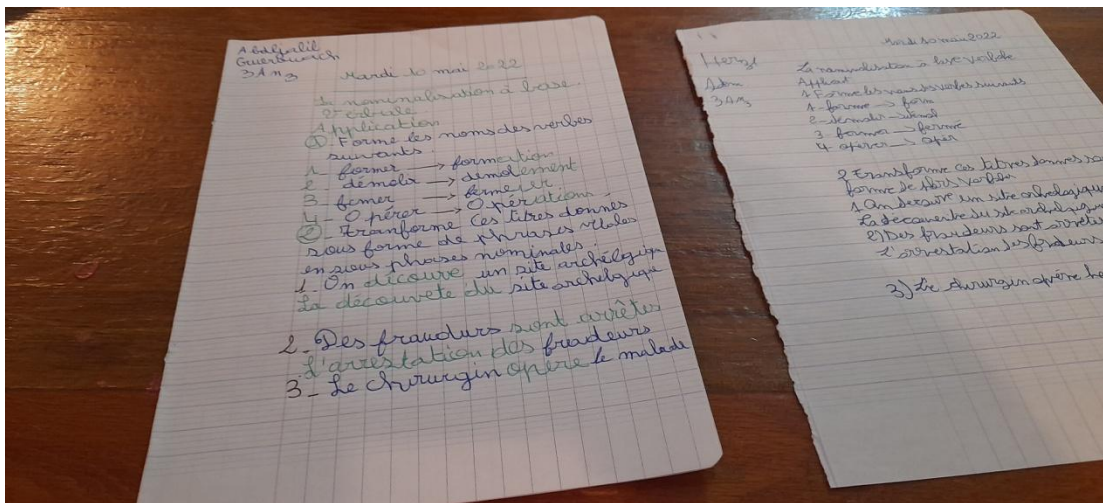 Abdljalil
3 Am 3
Mardi 10 mai 2022
La nominalisation à base
Verbale
Application
① Forme les noms des verbes
suivants
1 - former → formation
2 - démolir → démolement
3 - femer →
4 - Opérer → Opérations.
② - Tranforme ces titres donnes
sous forme de phrases
en sous phases nominales.
1 - On découve un site archélogique
La découvete du site archelgique
2 - Des fraudurs sont arrêtes
L'arrestation des fradeurs
3 - Le chirurgin opère le malade
Mardi 10 mai 2022
3 Am 3
La nominalisation à base verbale
Applicat
1 Forme les noms des verbes suivants
1 - forme → form
2 - demolir → demol
3 - fermer → fermé
4 - opérer → opér
2 Transforme ces titres donnes
forme de
1
La decouverte du site
2) Des fraudeurs sont arretes
L'arrestation des
3) Le chirurgin opère